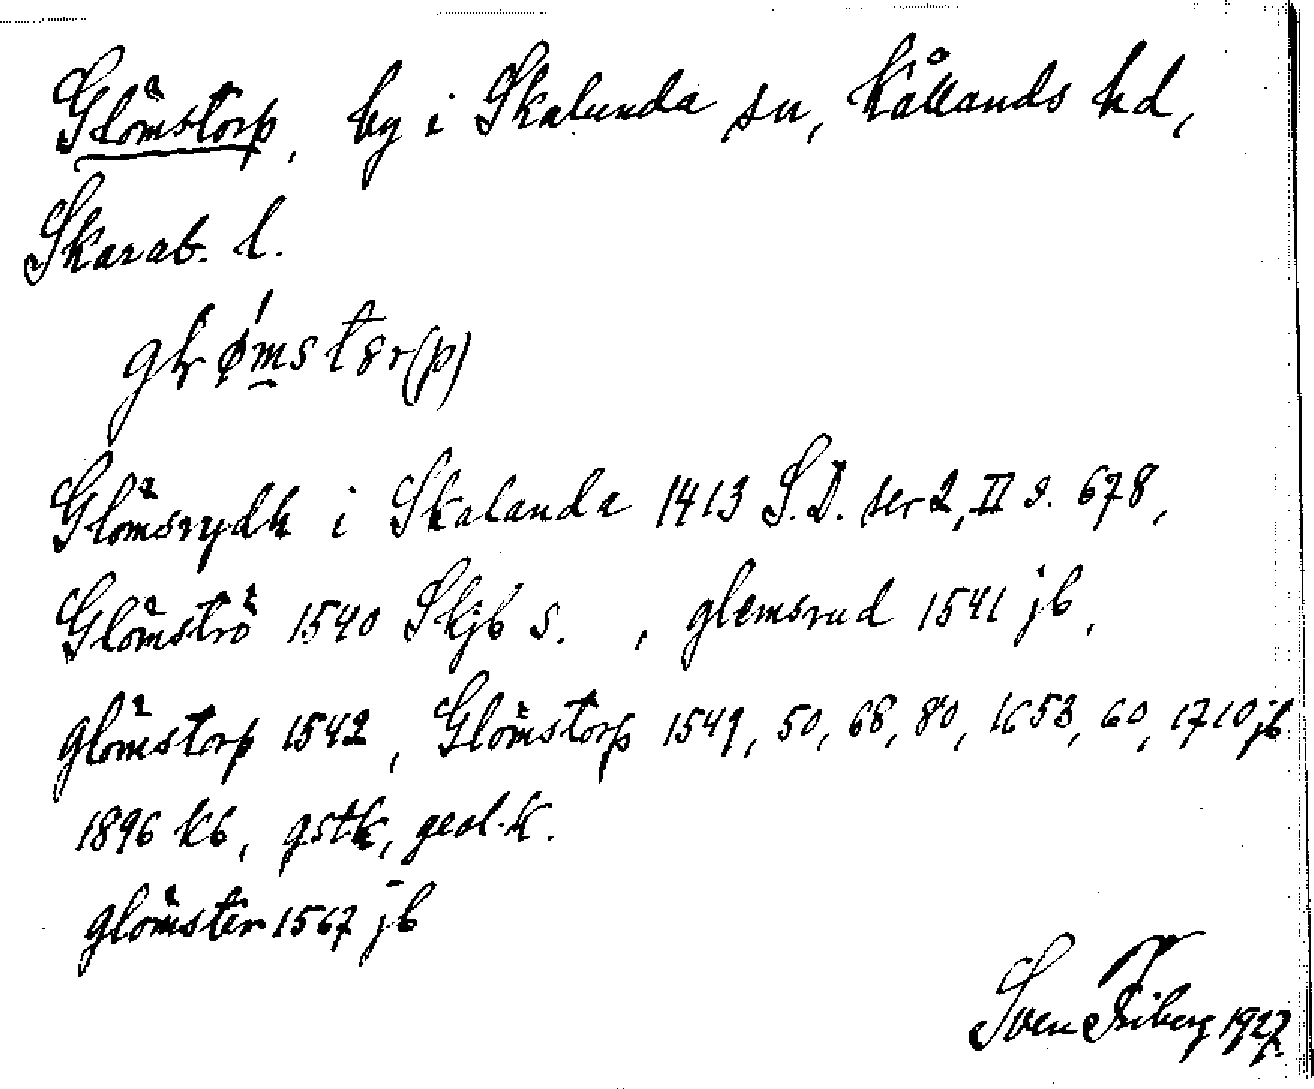 Glömstorp, by i Skalunda sn, Kållands hd,
Skarab. l.
glømstər(p)
Glömsrydh i Skalanda 1413 S.D. ser 2, II s. 678,
Glömströ 1540 Skjb s. , glemsrud 1541 jb,
glömstorp 1542, Glömstorp 1549, 50, 68, 80, 1653, 60, 1710 jb
1896 kb, gstk, geol. k.
glömster 1567 jb
Sven Friberg 1927